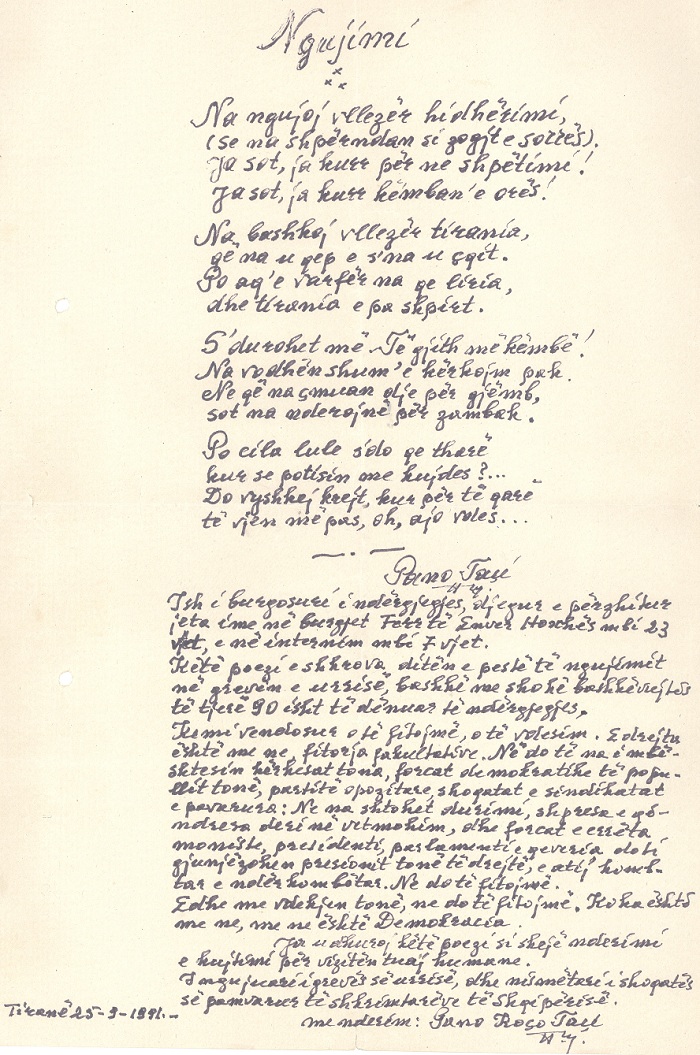 Ngujimi
x
x x
Na ngujoj vllezër hidhërimi,
(se na shpërndan si zogjt e sorrës).
Ja sot, ja kurr për ne shpëtimi!
Ja sot, ja kurr këmban'e orës!
Na bashkoj vllezër tirania,
që na u qep e s'na u çqit.
Po aq'e varfër na qe liria,
dhe tirania e pa shpirt.
S'durohet më. Të gjith më këmbë!
Na vodhën shum'e kërkojm pak.
Ne që na çmuan dje për gjëmb,
sot na nderojnë për zambak.
Po cila lule s'do qe tharë
kur se potisin me kujdes?...
Do vyshkej krejt, kur për të qarë
të vjen më pas, oh, ajo vdes...
Pano Taçi
Ish i burgosuri i ndërgjegjes, djegur e përzhitur
jeta ime në burgjet Ferr të Enver Hoxhës mbi 23
vjet, e në internim mbi 7 vjet.
Këtë poezi e shkrova ditën e pestë të ngujimit
në grevën e urisë, bashkë me shokë bashkëvuajtës
të tjerë 90 isht të dënuar të ndërgjegjes.
Kemi vendosur o të fitojmë, o të vdesim. E drejta
është me ne, fitorja fakultative. Në do të na i mbë-
shtesin kërkesat tona, forcat demokratike të popu-
llit tonë, partitë opozitare, shoqatat e sindikatat
e pavarura: Ne na shtohet durimi, shpresa e që-
ndresa deri në vetmohim, dhe forcat e errëta
moniste, presidenti, parlamenti e qeveria do ti
gjunjëzohen presionit tonë të drejtë, e atij komb-
tar e ndërkombëtar. Ne do të fitojmë.
Edhe me vdekjen tonë, ne do të fitojmë. Koha është
me ne, me ne është Demokracia.
Ja u dhuroj këtë poezi si shejë nderimi
e kujtimi për vizitën tuaj humane.
I ngujuari i grevës së urisë, dhe nismëtari i shoqatës
së pamvarur të shkrimtarëve të Shqipërisë.
Tiranë 25-9-1991.-
me nderim: Pano Poço Taçi